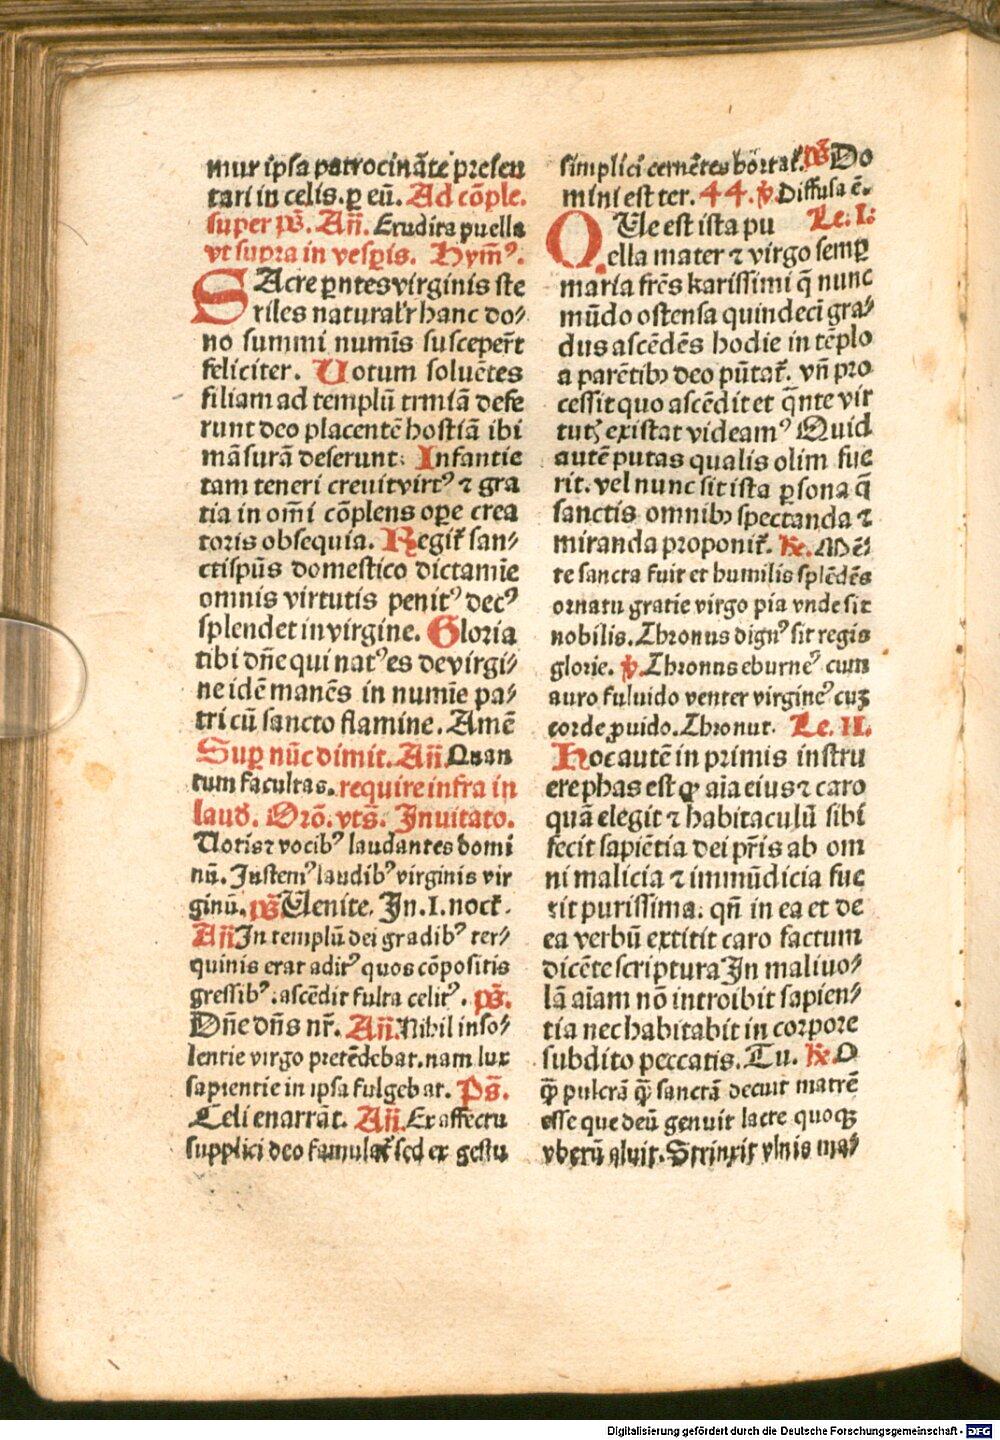 mur ipsa patrocinãte presen
tari in celis. ꝑ eũ. Ad cõple.
super p̃s. Añ. Erudita puella
vt supra in vesꝑis. Hym̃ꝰ.
SAcre ꝑntes virginis ste
riles naturalr̃ hanc do⸗
no summi numĩs susceper̃t
feliciter. Uotum soluẽtes
filiam ad templũ trmiã defe
runt deo placentẽ hostiã ibi
mãsurã deserunt. Infantie
tam teneri creuit virtꝰ ⁊ gra
tia in om̃i cõplens oꝑe crea
toris obsequia. Regit᷑ san⸗
ctispũs domestico dictamĩe
omnis virtutis penitꝰ decꝰ
splendet in virgine. Gloria
tibi dñe qui natꝰ es de virgi⸗
ne idẽ manẽs in numĩe pa⸗
tri cũ sancto flamine. Amẽ
Suꝑ nũc dimit. Añ. Quan
tum facultas. require infra in
laud. Orõ. vts̃. Inuitato.
Uotis ⁊ vocibꝰ laudantes domi
nũ. Instemꝰ laudibꝰ virginis vir
ginũ. p̃s Uenite. In. I. noct̃.
Añ In templũ dei gradibꝰ ter⸗
quinis erat aditꝰ quos cõpositis
gressibꝰ. ascẽdit fulta celitꝰ. p̃s.
Dñe dñs nr̃. Añ. Nihil inso⸗
lentie virgo pretẽdebat. nam lux
sapientie in ipsa fulgebat. Ps̃.
Celi enarrãt. Añ. Ex affectu
supplici deo famulat᷑ sed ex gestu
simplici cernẽtes hortat᷑. p̃s Do
mini est ter. 44. v̷. Diffusa ẽ.
Le. I.
QUe est ista pu
ella mater ⁊ virgo semꝑ
maria fr̃es karissimi q̃ nunc
mũdo ostensa quindeci gra⸗
dus ascẽdẽs hodie in tẽplo
a parẽtibꝫ deo pñtat᷑. vñ pro
cessit quo ascẽdit et q̃nte vir
tutꝭ existat videamꝰ Quid
autẽ putas qualis olim fue
rit. vel nunc sit ista ꝑsona q̃
sanctis omnibꝫ spectanda ⁊
miranda proponit᷑. R̷. Mẽ⸗
te sancta fuit et humilis splẽdẽs
ornatu gratie virgo pia vnde sit
nobilis. Thronus dignꝰ sit regis
glorie. v̷. Thronus eburneꝰ cum
auro fuluido venter virgineꝰ cuꝫ
corde ꝓuido. Thronus. Le. II.
Hoc autẽ in primis instru
ere phas est ꝙ aĩa eius ⁊ caro
quã elegit ⁊ habitaculũ sibi
fecit sapiẽtia dei pr̃is ab om
ni malicia ⁊ immũdicia fue
rit purissima. qñ in ea et de
ea verbũ extitit caro factum
dicẽte scriptura In maliuo⸗
lã aĩam nõ introibit sapien⸗
tia nec habitabit in corpore
subdito peccatis. Tu. R̷. O
q̃ pulcrã q̃ sanctã decuit matrẽ
esse que deũ genuit lacte quoqꝫ
vberũ aluit. Strinxit vlnis ma⸗
Digitalisierung gefördert durch die Deutsche Forschungsgemeinschaft - DFG